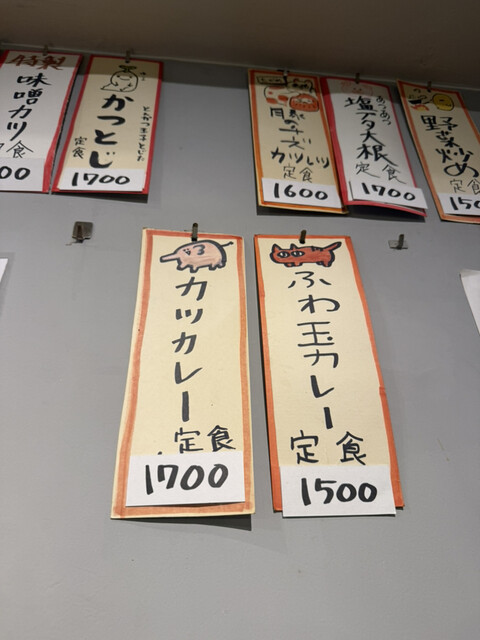 特製
味噌カツ
定食
00
かつとじ
とんかつ玉子とじた
定食
1700
カツ
定食
1600
あつあつ
塩
大根
定食
1700
野菜炒め
定食
150
カツカレー
定食
1700
ふわ玉カレー
定食
1500